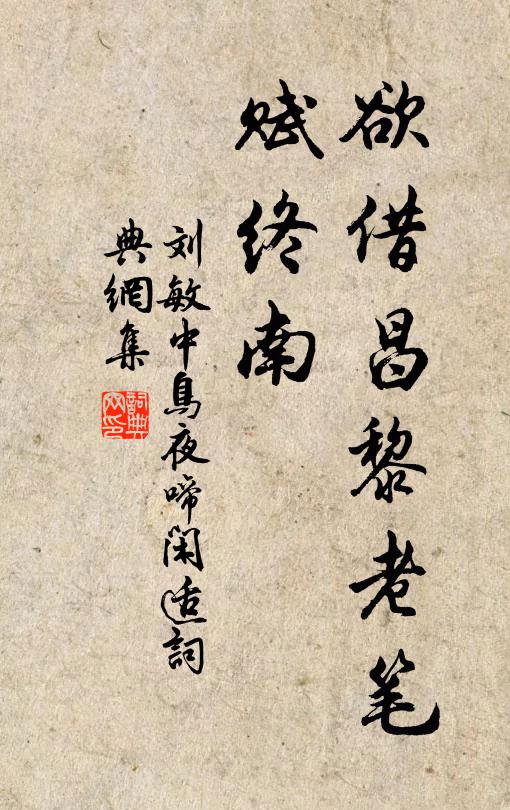 欲借昌黎老笔
赋终南
刘敏中鳥夜啼閑适詞
典網集
詞典
网印